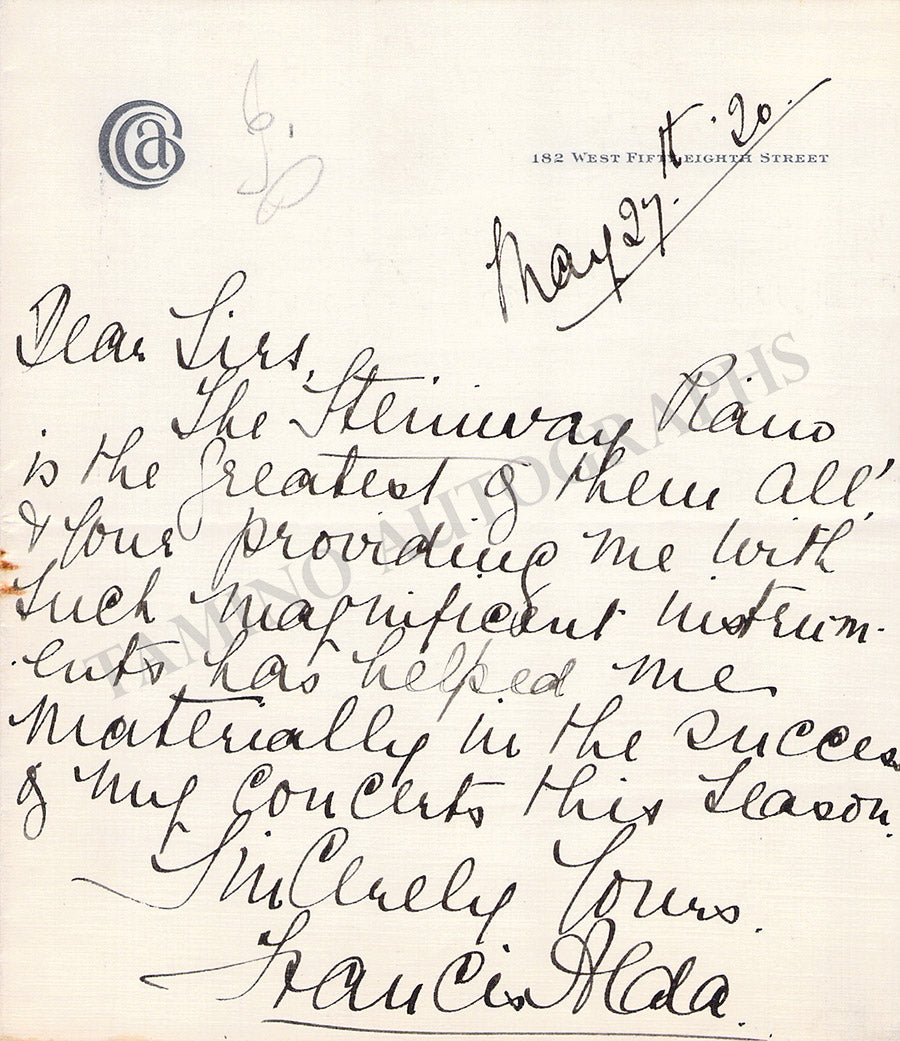 182 WEST FIFTY EIGHTH STREET
May 27th '20.
Dear Sirs,
The Steinway Piano
is the greatest of them all,
& Your providing me with
such magnificent instrum-
ents has helped me
materially in the success
of my concerts this Season.
Sincerely Yours.
Francis Alda.
TAMINO AUTOGRAPHS